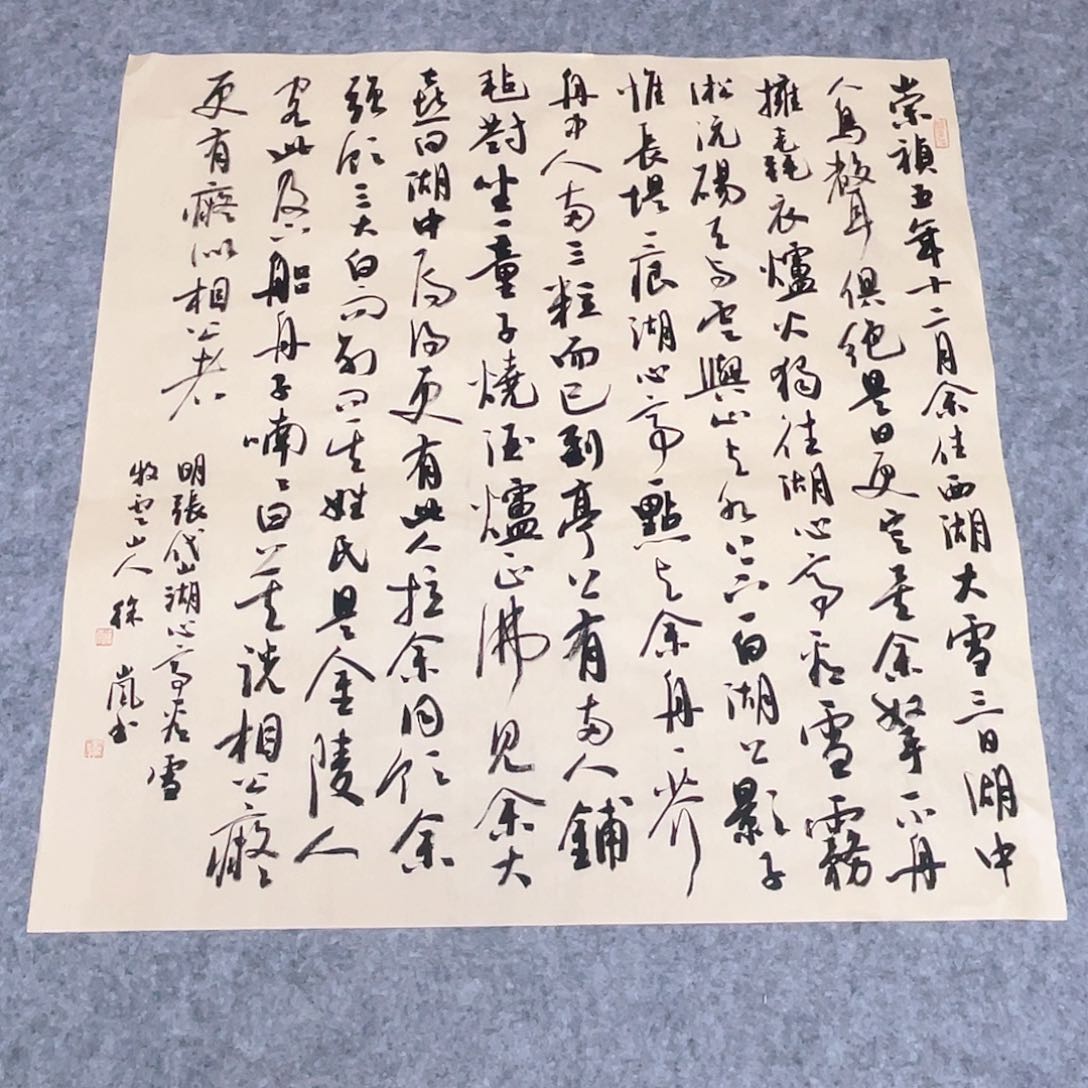 崇禎五年十二月余住西湖大雪三日湖中
人鳥聲俱絕是日更定矣余拏一小舟
擁毳衣爐火獨往湖心亭看雪霧
淞沆碭天與雲與山與水上下一白湖上影子
惟長堤一痕湖心亭一點與余舟一芥
舟中人兩三粒而已到亭上有兩人鋪
氈對坐一童子燒酒爐正沸見余大
喜曰湖中焉得更有此人拉余同飲余
強飲三大白而別問其姓氏是金陵人
客此及下船舟子喃喃曰莫說相公癡
更有癡似相公者
明張岱湖心亭看雪
牧雲山人徐嵐書